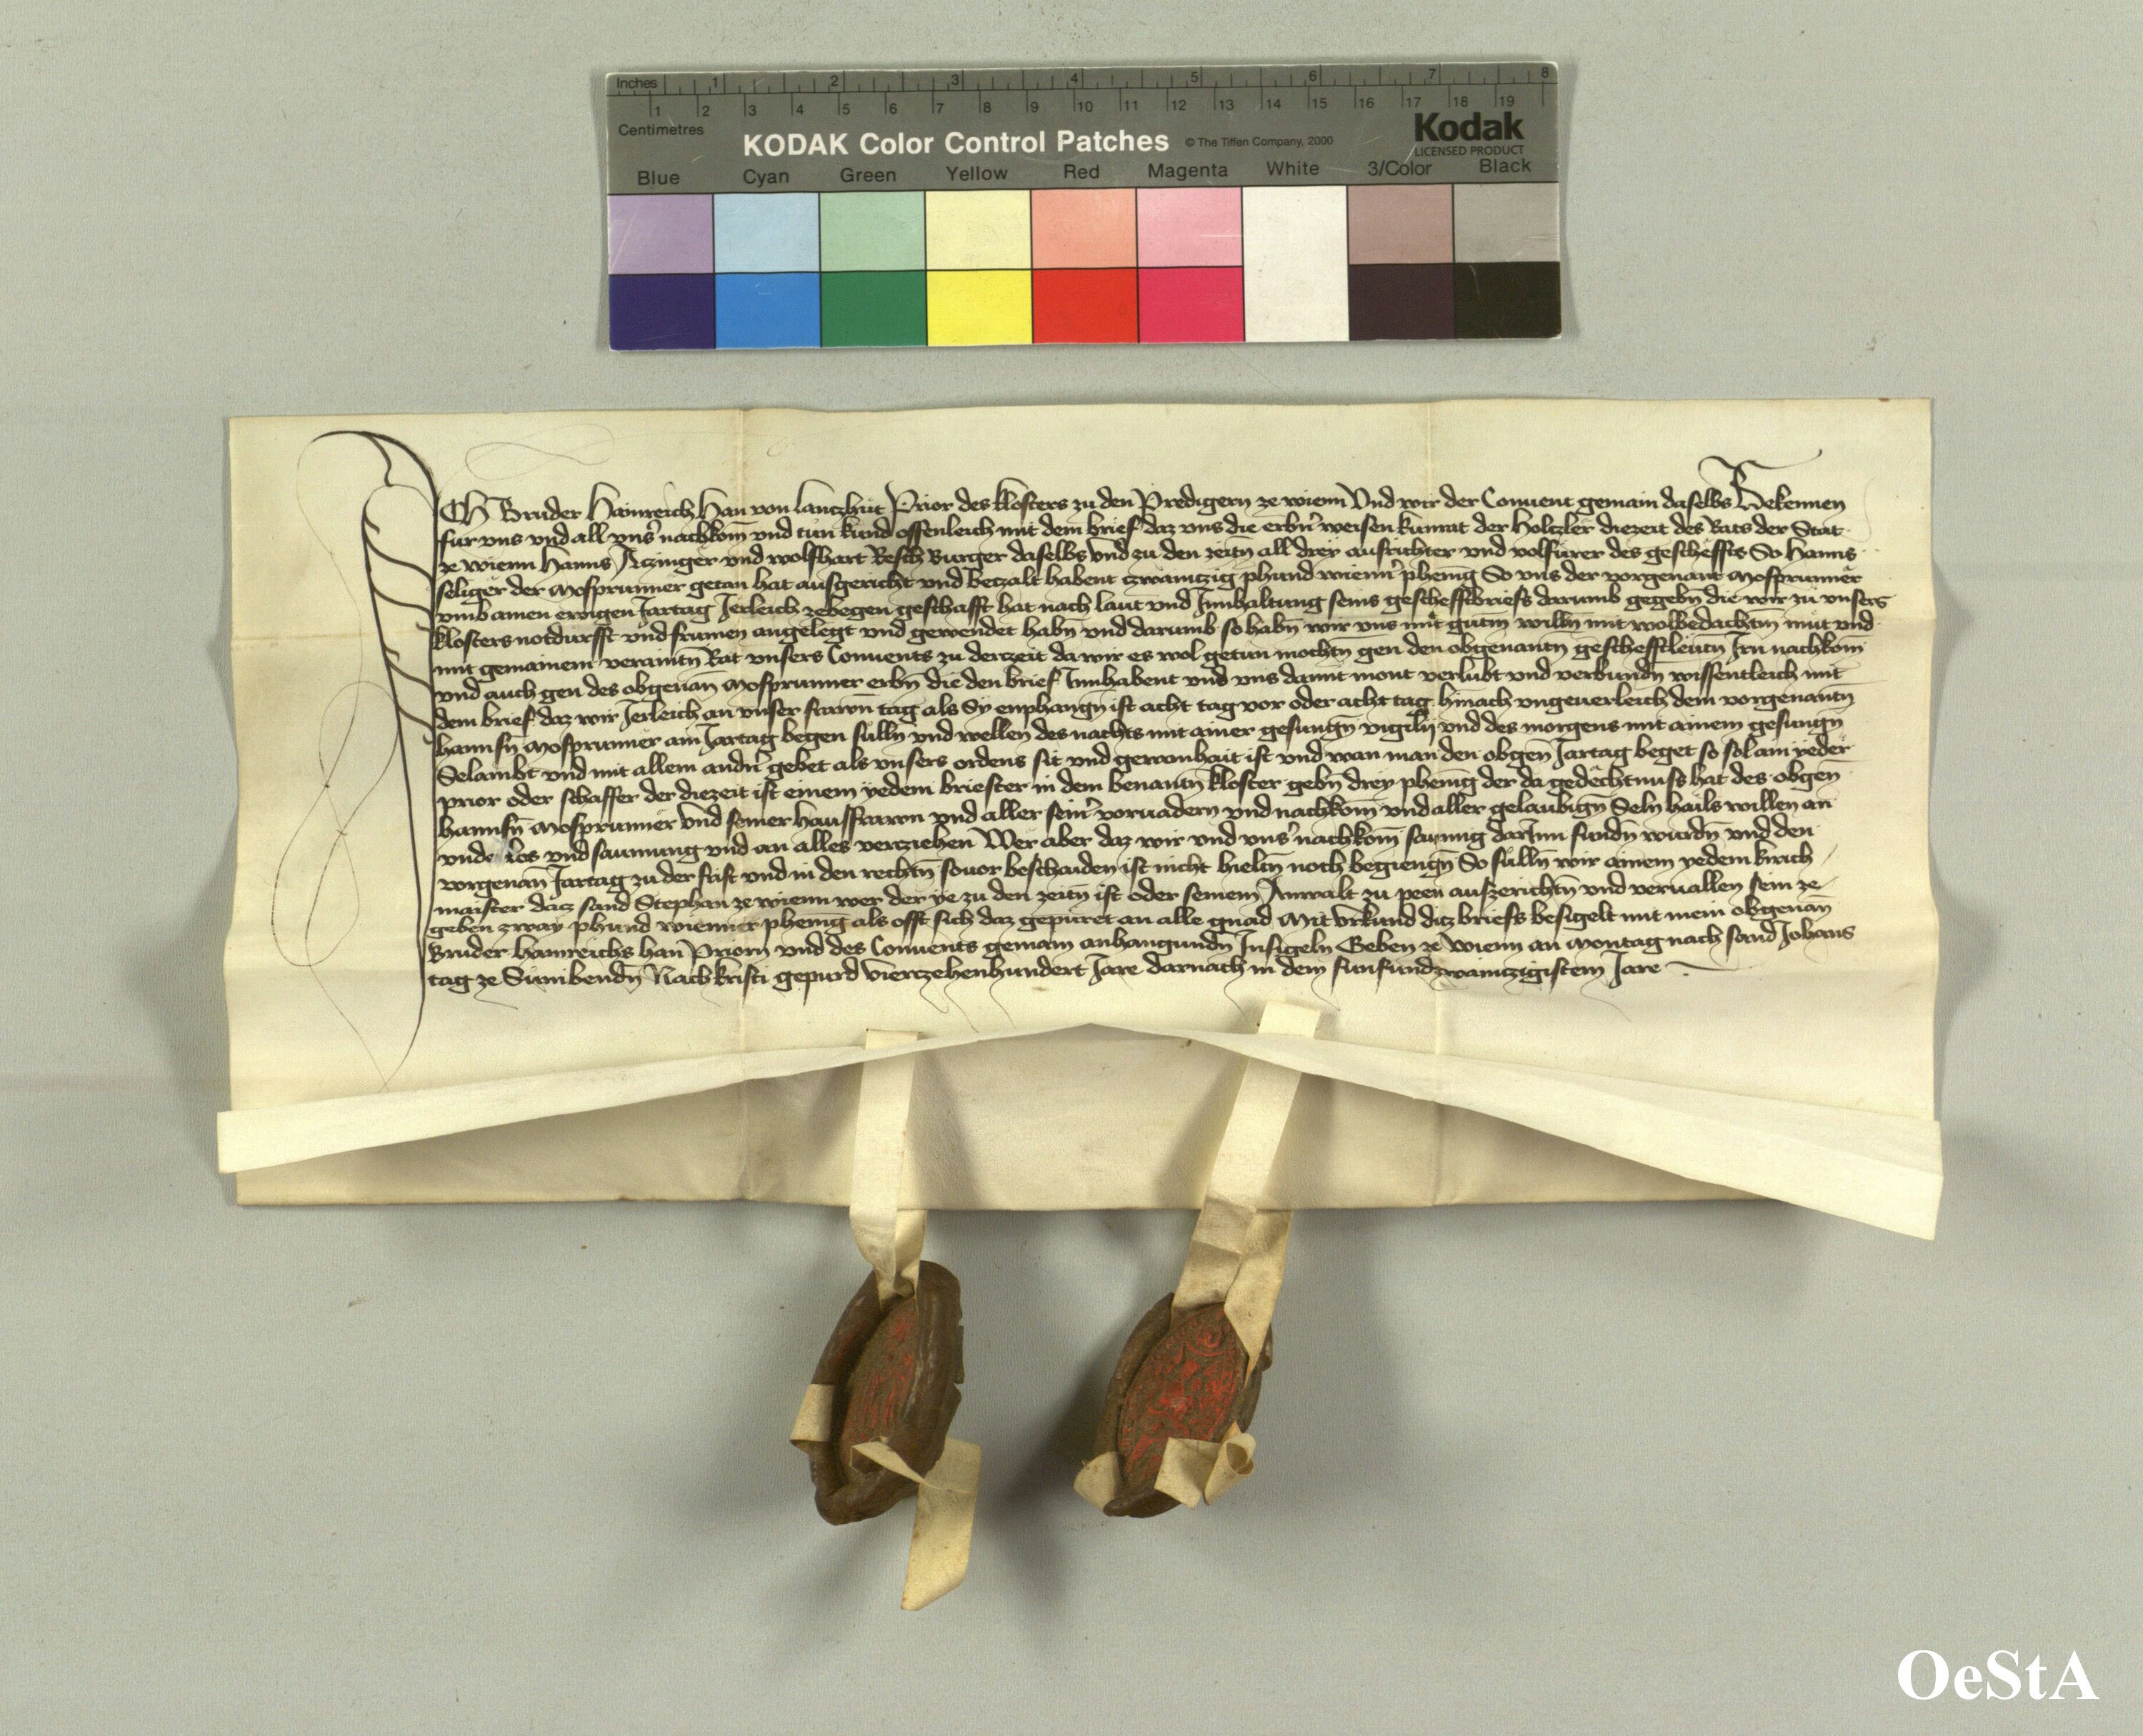 Inches 1 2 3 4 5 6 7 8
1 2 3 4 5 6 7 8 9 10 11 12 13 14 15 16 17 18 19
Centimetres
KODAK Color Control Patches © The Tiffen Company, 2000 Kodak
LICENSED PRODUCT
Blue Cyan Green Yellow Red Magenta White 3/Color Black
ICH Bruder Hainreich Han von lantzhut Prior des klosters zu den Predigern ze wienn Und wir der Conuent gemain daselbs Bekennen
fur vns vnd all vns' nachkom̄ vnd tun kund offenleich mit dem brief daz vns die erbn̄ weisen kunrat der Holtzler diezeit des Rats der Stat
ze wienn Hanns Atzinger vnd wolfhart Resch Burger daselbs vnd zu den zeitn̄ all drey ausrichter vnd volfurer des gescheffts So Hanns
seliger der Mosprunner getan hat ausgericht vnd betzalt habent zwaintzig phund wienn' phenīg So vns der vorgenant Mosprunner
vmb ainen ewigen Jartag Jerleich zebegen geschafft hat nach laut vnd Innhaltung seins geschefftbriefs darumb gegebn̄ die wir zu vnsers
klosters notdurfft vnd frumen angelegt vnd gewendet habn̄ vnd darumb so habn̄ wir vns mit gutm̄ willn̄ mit wolbedachtm̄ mut vnd
mit gemainem veraintn̄ Rat vnsers Conuents zu derzeit da wir es wol getun mochtn̄ gen den obgenantn̄ geschefftleutn̄ Irn nachkom̄
vnd auch gen des obgenan̄ Mosprunner erbn̄ die den brief Innhabent vnd vns damit mont verlubt vnd verbundn̄ wissentleich mit
dem brief daz wir Jerleich an vnser frawn̄ tag als Sy enphangn̄ ist acht tag vor oder acht tag hinach vngeuerleich dem vorgenantn̄
hannsn̄ Mosprunner ain Jartag begen sulln̄ vnd wellen des nachts mit ainer gesungn̄ vigily vnd des morgens mit ainem gesungn̄
Selambt vnd mit allem andn̄ gebet als vnsers ordens sit vnd gewonhait ist vnd wan man den obgen̄ Jartag beget so sol ain yeder
prior oder schaffer der diezeit ist einem yedem briester in dem benantn̄ kloster gebn̄ drey phenīg der da gedechtnuss hat des obgen̄
hannsn̄ Mosprunner vnd seiner Hausfrawn vnd aller sein' voruadern vnd nachkom̄ vnd aller gelaubign̄ Seln hails willen an
vnd saumung vnd an alles verziehen Wer aber daz wir vnd vns' nachkom̄ saumig darInn fundn̄ wurdn̄ vnd den
vorgenan̄ Jartag zu der frist vnd in den rechtn̄ souor beschaiden ist nicht hieltn̄ noch begiengn̄ So sulln̄ wir ainem yedem kirich
maister datz sand Stephan ze wienn wer der ye zu den zeitn̄ ist oder seinem Anwalt zu peen auszerichtn̄ vnd veruallen sein ze
geben zway phund wienner phenīg als offt sich daz gepuret an alle gnad Mit vrkund ditz briefs besigelt mit mein obgenan̄
Bruder Hainreichs han Priorn vnd des Conuents gemain anhangundn̄ Insigeln Geben ze wienn an Montag nach sand Johans
tag ze Sunnbendn̄ Nach kristi gepurd vierzehenhundert Jare darnach in dem funfundzwaintzigistem Jare
OeStA